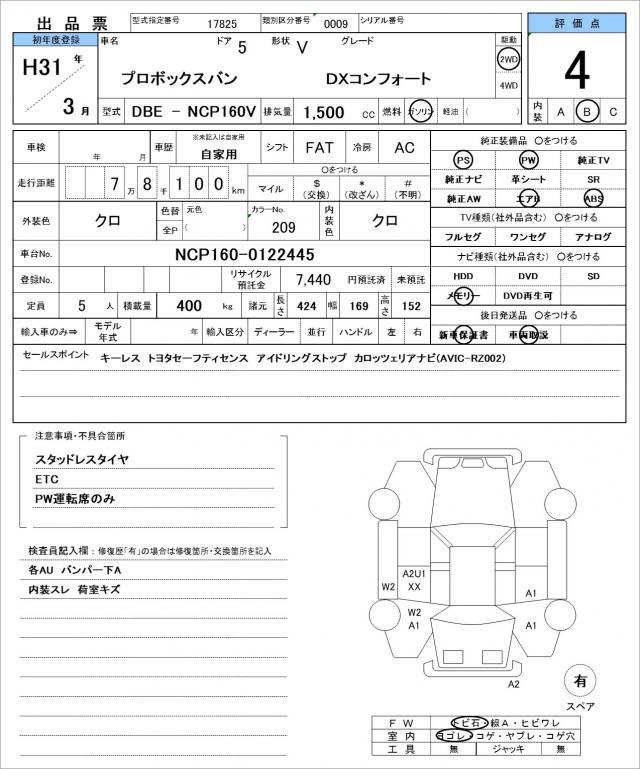 出品票
型式指定番号 17825 類別区分番号 0009 シリアル番号
評価点
初年度登録 車名 ドア 5 形状 V グレード 駆動
H31 年
3 月
プロボックスバン DXコンフォート
2WD
4WD
4
型式 DBE － NCP160V 排気量 1,500 cc 燃料 ガソリン 軽油 ( )
内装 A B C
車検 年 月 車歴 ※未記入は自家用 自家用 シフト FAT 冷房 AC
走行距離 7 万 8 千 1 0 0 km
〇をつける
マイル $ (交換) * (改ざん) # (不明)
外装色 クロ 色替 全P 元色 ( ) カラーNo. 209 内装色 クロ
車台No. NCP160-0122445
登録No. リサイクル預託金 7,440 円預託済 未預託
定員 5 人 積載量 400 kg 諸元 長さ 424 幅 169 高さ 152
輸入車のみ⇒ モデル年式 年 輸入区分 ディーラー 並行 ハンドル 左 右
純正装備品 〇をつける
PS PW 純正TV
純正ナビ 革シート SR
純正AW エアB ABS
TV種類(社外品含む) 〇をつける
フルセグ ワンセグ アナログ
ナビ種類(社外品含む) 〇をつける
HDD DVD SD
メモリー DVD再生可
後日発送品 〇をつける
新車保証書 車両取説
セールスポイント キーレス トヨタセーフティセンス アイドリングストップ カロッツェリアナビ(AVIC-RZ002)
注意事項・不具合箇所
スタッドレスタイヤ
ETC
PW運転席のみ
検査員記入欄：修復歴「有」の場合は修復箇所・交換箇所を記入
各AU バンパー下A
内装スレ 荷室キズ
A2U1
XX
W2
W2
A1
A1
A1
A2
有
スペア
ＦＷ トビ石・線A・ヒビワレ
室内 ヨゴレ・コゲ・ヤブレ・コゲ穴
工具 無 ジャッキ 無